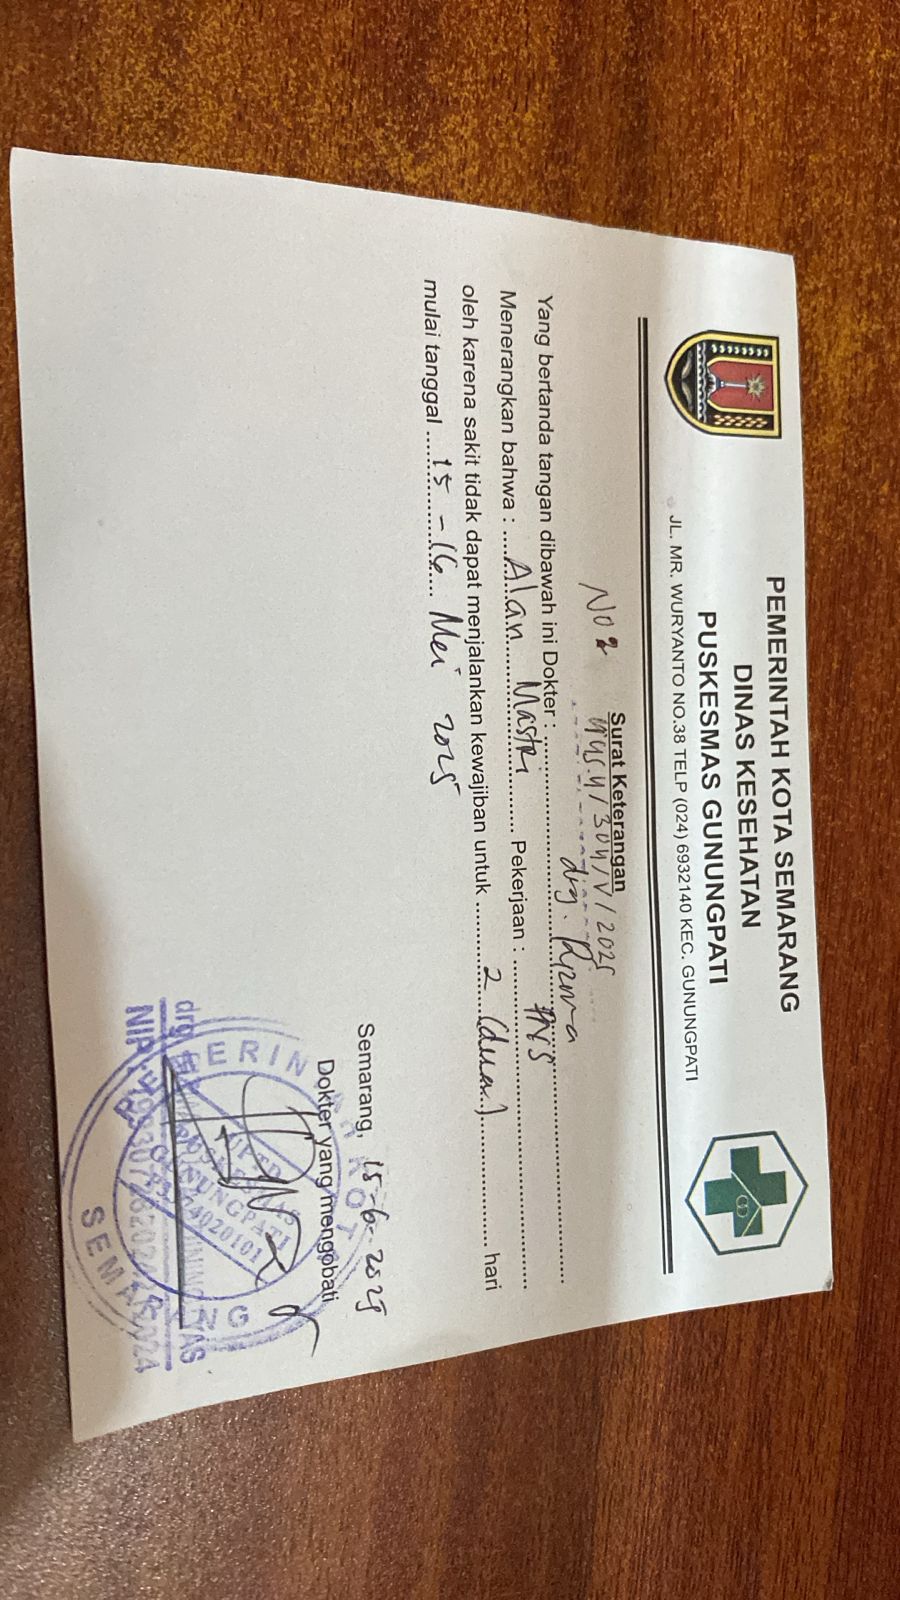 PEMERINTAH KOTA SEMARANG
DINAS KESEHATAN
PUSKESMAS GUNUNGPATI
JL. MR. WURYANTO NO.38 TELP (024) 6932140 KEC. GUNUNGPATI
Surat Keterangan
No
/304/V/2025
Yang bertanda tangan dibawah ini Dokter : drg.
Menerangkan bahwa : Alan Mastri Pekerjaan : PNS
oleh karena sakit tidak dapat menjalankan kewajiban untuk 2 (dua) hari
mulai tanggal 15 - 16 Mei 2025
Semarang, 15-6-2025
Dokter yang mengobati
GUNUNGPATI
SEMARANG
drg.
NIP.